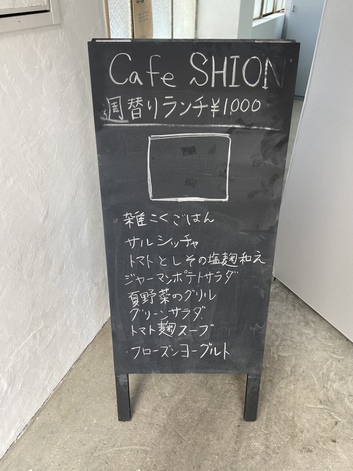 Cafe SHION
週替りランチ¥1000
・雑こくごはん
サルシッチャ
トマトとしその塩麹和え
ジャーマンポテトサラダ
夏野菜のグリル
グリーンサラダ
トマト麹スープ
・フローズンヨーグルト